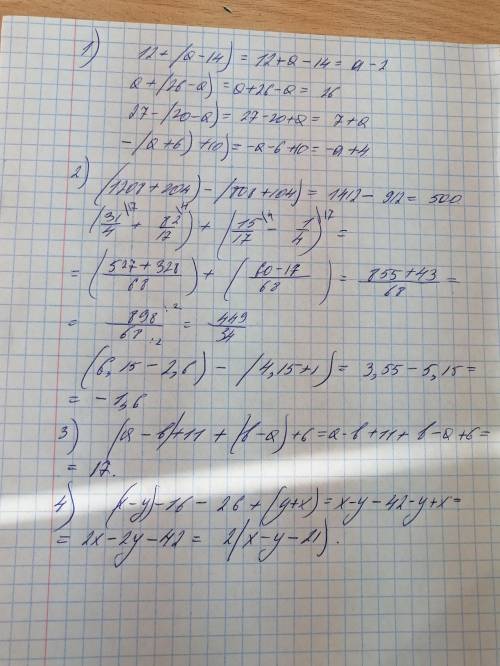 1) 12 + (a - 14) = 12 + a - 14 = a - 2
a + (26 - a) = a + 26 - a = 26
27 - (20 - a) = 27 - 20 + a = 7 + a
-(a + 6) + 10) = -a - 6 + 10 = -a + 4
2) (1208 + 204) - (808 + 104) = 1412 - 912 = 500
(31/4 \17 + 82/17 \4) + (15/17 \4 - 1/4 \17) =
= (527 + 328/68) + (60 - 17/68) = 855 + 43/68 =
= 898 :2/68 :2 = 449/34
(6,15 - 2,6) - (4,15 + 1) = 3,55 - 5,15 =
= -1,6
3) (a - b) + 11 + (b - a) + 6 = a - b + 11 + b - a + 6 =
= 17.
4) (x - y) - 16 - 26 + (y + x) = x - y - 42 - y + x =
= 2x - 2y - 42 = 2(x - y - 21).